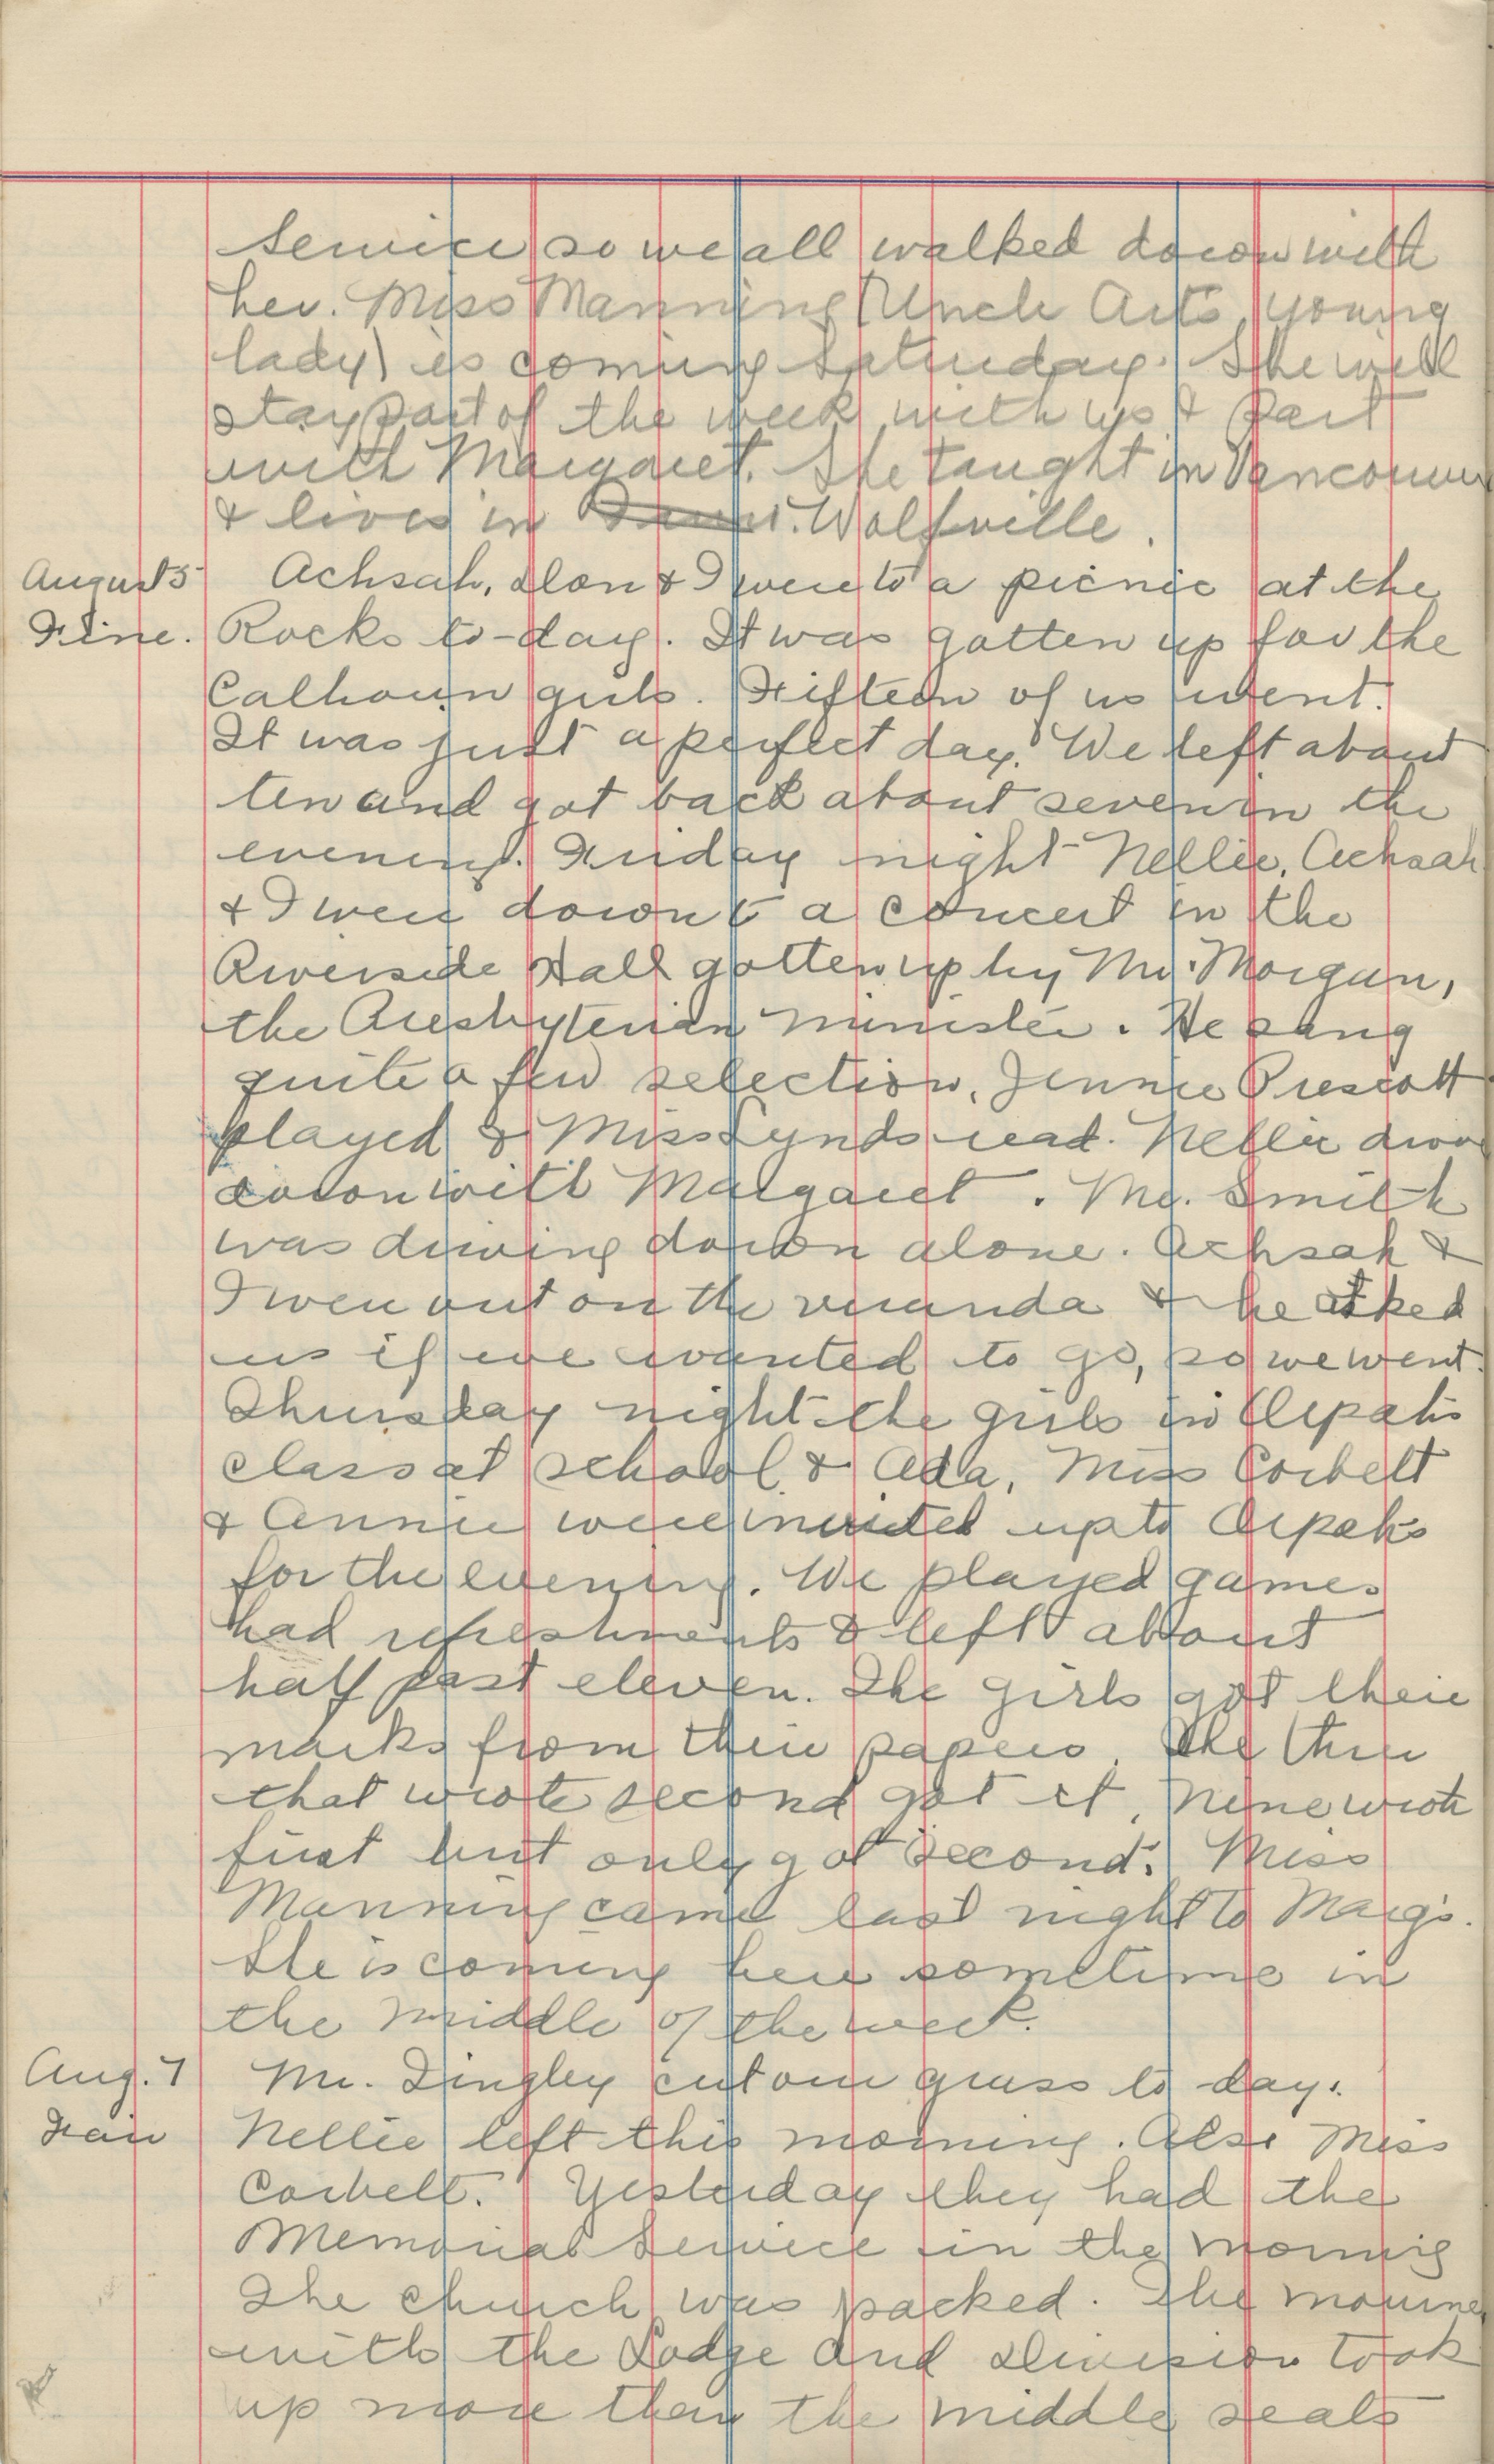 Service so we all walked down with
her. Miss Manning (Uncle Art's, young
lady) is coming Saturday. She will
stay part of the week with us & part
with Margaret. She taught in Vancouver
& lives in Wolfville.
August 5 Achsah, Don & I were to a picnic at the
Fine. Rocks to-day. It was gotten up for the
Calhoun girls. Fifteen of us went.
It was just a perfect day. We left about
ten and got back about seven in the
evening. Friday night Nellie, Achsah
& I were down to a concert in the
Riverside Hall gotten up by Mr. Morgan,
the Presbyterian minister. He sang
quite a few selection, Jennie Prescott
played & Miss Lynds read. Nellie drove
down with Margaret. Mr. Smith
was driving down alone. Achsah &
I were out on the veranda & he asked
us if we wanted to go, so we went.
Thursday night the girls in Orpah's
class at school & Ada, Miss Corbett
& Annie were invited up to Orpah's
for the evening. We played games
had refreshments & left about
half past eleven. The girls got their
marks from their papers. The three
that wrote second got it, Nine wrote
first but only got second. Miss
Manning came last night to Marg's.
She is coming here sometime in
the middle of the week.
Aug. 7 Mr. Tingley cut our grass to day.
Fair Nellie left this morning. Also Miss
Corbett. Yesterday they had the
Memorial Service in the morning
The church was packed. The mourners
with the Lodge and Division took
up more than the middle seats